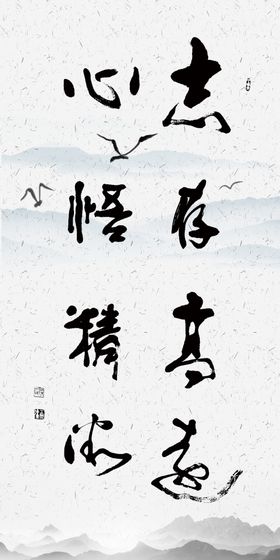 志存高远
心悟精微